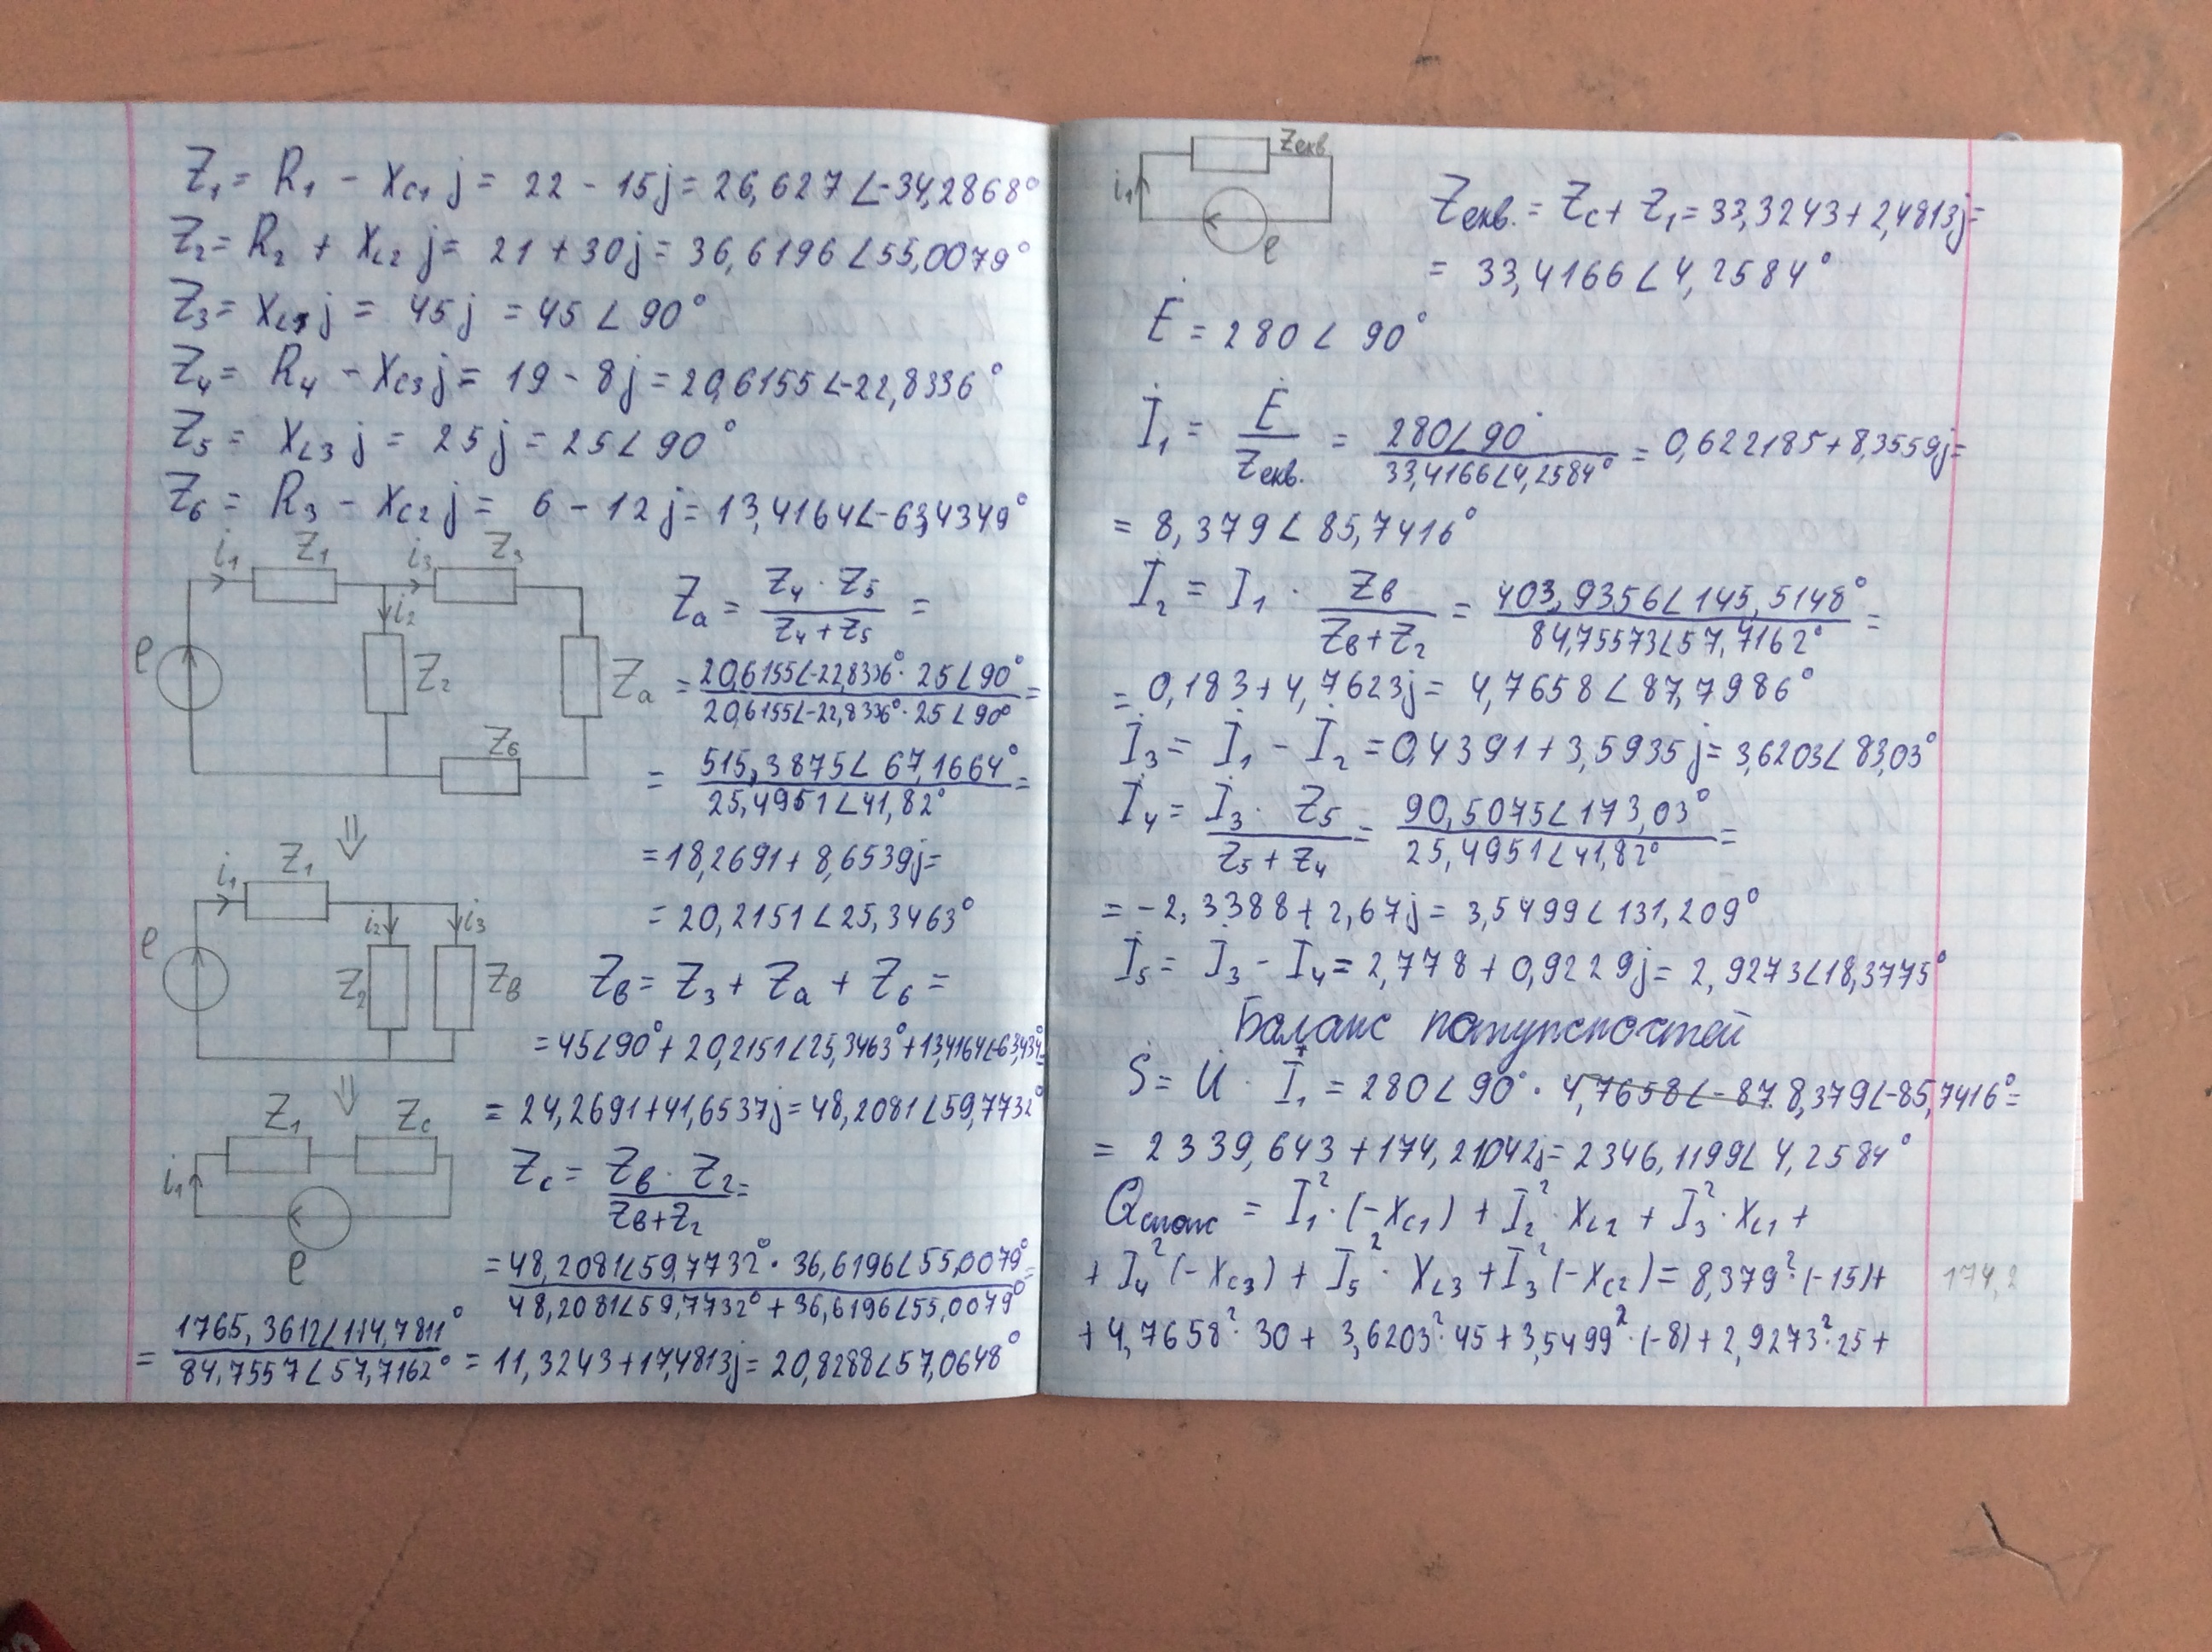 Z₁ = R₁ - Xc₁ j = 22 - 15j = 26,627∠-34,2868°
Z₂ = R₂ + X_L2 j = 21 + 30j = 36,6196∠55,0079°
Z₃ = X_L1 j = 45j = 45∠90°
Z₄ = R₄ - Xc₃ j = 19 - 8j = 20,6155∠-22,8336°
Z₅ = X_L3 j = 25j = 25∠90°
Z₆ = R₃ - Xc₂ j = 6 - 12j = 13,4164∠-63,4349°
i₁ Z₁ i₃ Z₃
i₂
e Z₂ Za
Z₆
Za = Z₄ · Z₅ / Z₄ + Z₅ =
= 20,6155∠-22,8336° · 25∠90° / 20,6155∠-22,8336° · 25∠90° =
= 515,3875∠67,1664° / 25,4951∠41,82° =
= 18,2691 + 8,6539j =
= 20,2151∠25,3463°
⇓
i₁ Z₁
i₂ i₃
e Z₂ Zв
Zв = Z₃ + Za + Z₆ =
= 45∠90° + 20,2151∠25,3463° + 13,4164∠-63,434° =
= 24,2691 + 41,6537j = 48,2081∠59,7732°
⇓
Z₁ Zc
i₁
e
Zc = Zв · Z₂ / Zв + Z₂ =
= 48,2081∠59,7732° · 36,6196∠55,0079° / 48,2081∠59,7732° + 36,6196∠55,0079° =
= 1765,3612∠114,7811° / 84,7557∠57,7162° = 11,3243 + 17,4813j = 20,8288∠57,0648°
Zекв
i₁
e
Zекв. = Zc + Z₁ = 33,3243 + 2,4813j =
= 33,4166∠4,2584°
Ė = 280∠90°
İ₁ = Ė / Zекв. = 280∠90° / 33,4166∠4,2584° = 0,622185 + 8,3559j =
= 8,379∠85,7416°
İ₂ = İ₁ · Zв / Zв + Z₂ = 403,9356∠145,5148° / 84,75573∠57,7162° =
= 0,183 + 4,7623j = 4,7658∠87,7986°
İ₃ = İ₁ - İ₂ = 0,4391 + 3,5935j = 3,6203∠83,03°
İ₄ = İ₃ · Z₅ / Z₅ + Z₄ = 90,5075∠173,03° / 25,4951∠41,82° =
= -2,3388 + 2,67j = 3,5499∠131,209°
İ₅ = İ₃ - İ₄ = 2,778 + 0,9229j = 2,9273∠18,3775°
Баланс
Ṡ = U̇ · I₁ = 280∠90° · 4,7658∠-87. 8,379∠-85,7416° =
= 2339,643 + 174,21042j = 2346,1199∠4,2584°
Qспож = I₁² · (-Xc₁) + I₂² · X_L2 + I₃² · X_L1 +
+ I₄² (-Xc₃) + I₅² · X_L3 + I₃² (-Xc₂) = 8,379² · (-15) + 174,2
+ 4,7658² · 30 + 3,6203² · 45 + 3,5499² · (-8) + 2,9273² · 25 +